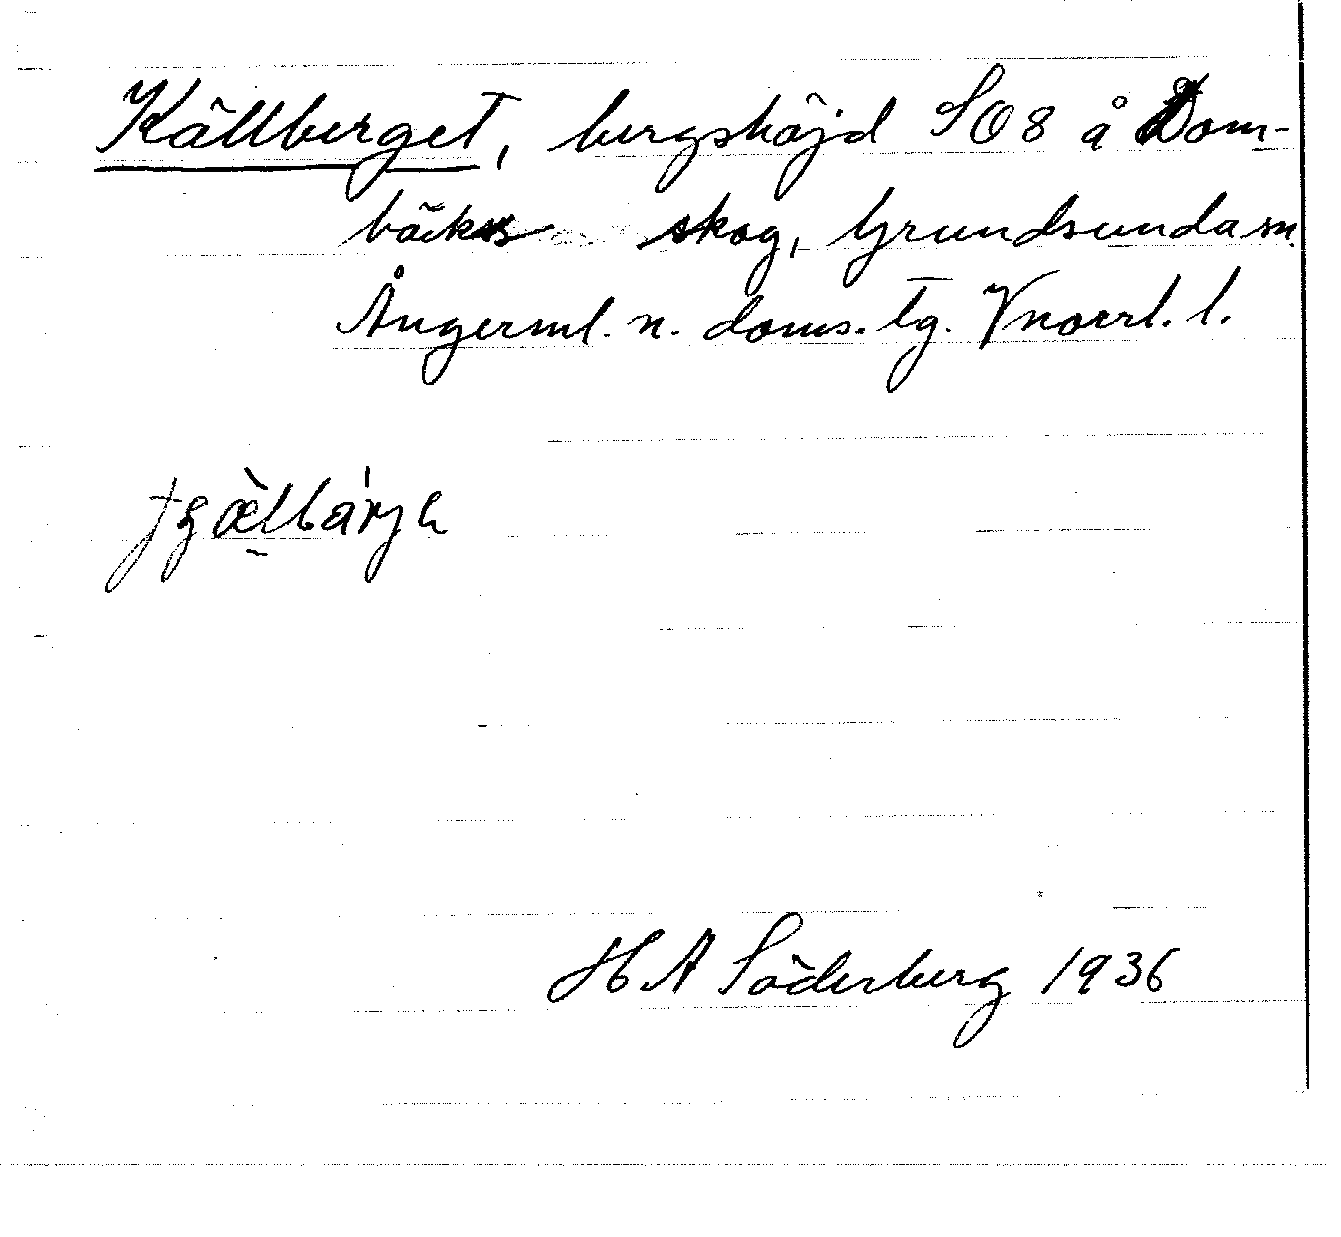 Källberget, bergshöjd SO8 å Dom-
bäcks skog, Grundsunda sn.
Ångerml. n. doms. tg. Vnorrl. l.
H A Söderberg 1936